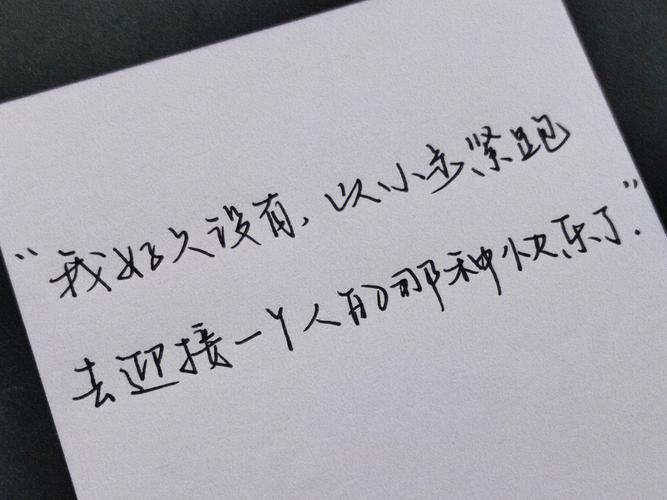 “我好久没有，以小步紧跑
去迎接一个人的那种快乐了.”